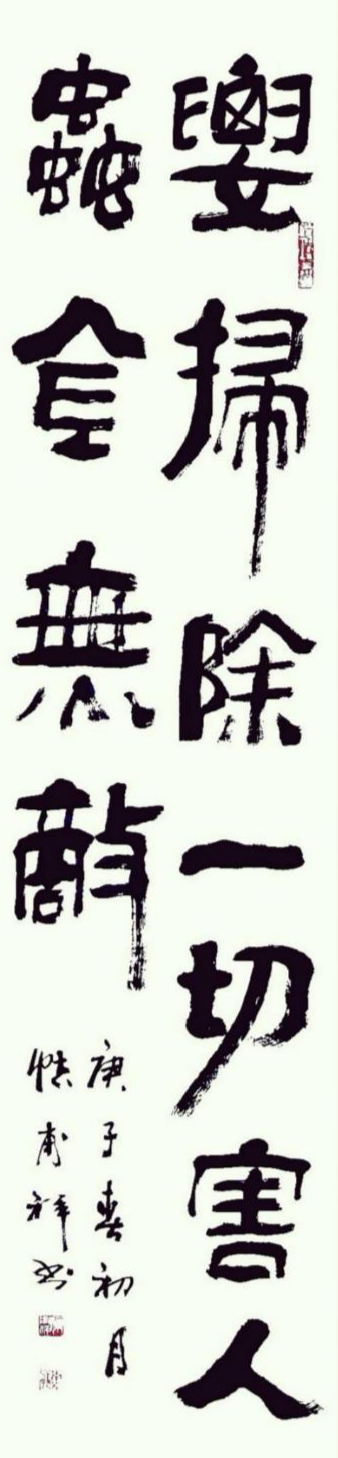 要掃除一切害人
蟲全無敵
庚子春初月
甫祥书